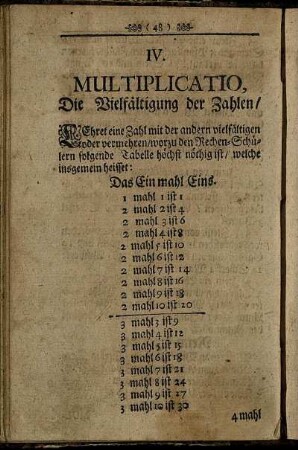 ( 48 )
IV.
MULTIPLICATIO,
Die Vielfältigung der Zahlen/
LEhret eine Zahl mit der andern vielfältigen
oder vermehren/worzu den Rechen-Schü-
lern folgende Tabelle höchst nöthig ist/ welche
insgemein heisset:
Das Ein mahl Eins.
1 mahl 1 ist 1
2 mahl 2 ist 4
2 mahl 3 ist 6
2 mahl 4 ist 8
2 mahl 5 ist 10
2 mahl 6 ist 12
2 mahl 7 ist 14
2 mahl 8 ist 16
2 mahl 9 ist 18
2 mahl 10 ist 20
3 mahl 3 ist 9
3 mahl 4 ist 12
3 mahl 5 ist 15
3 mahl 6 ist 18
3 mahl 7 ist 21
3 mahl 8 ist 24
3 mahl 9 ist 27
3 mahl 10 ist 30
4 mahl